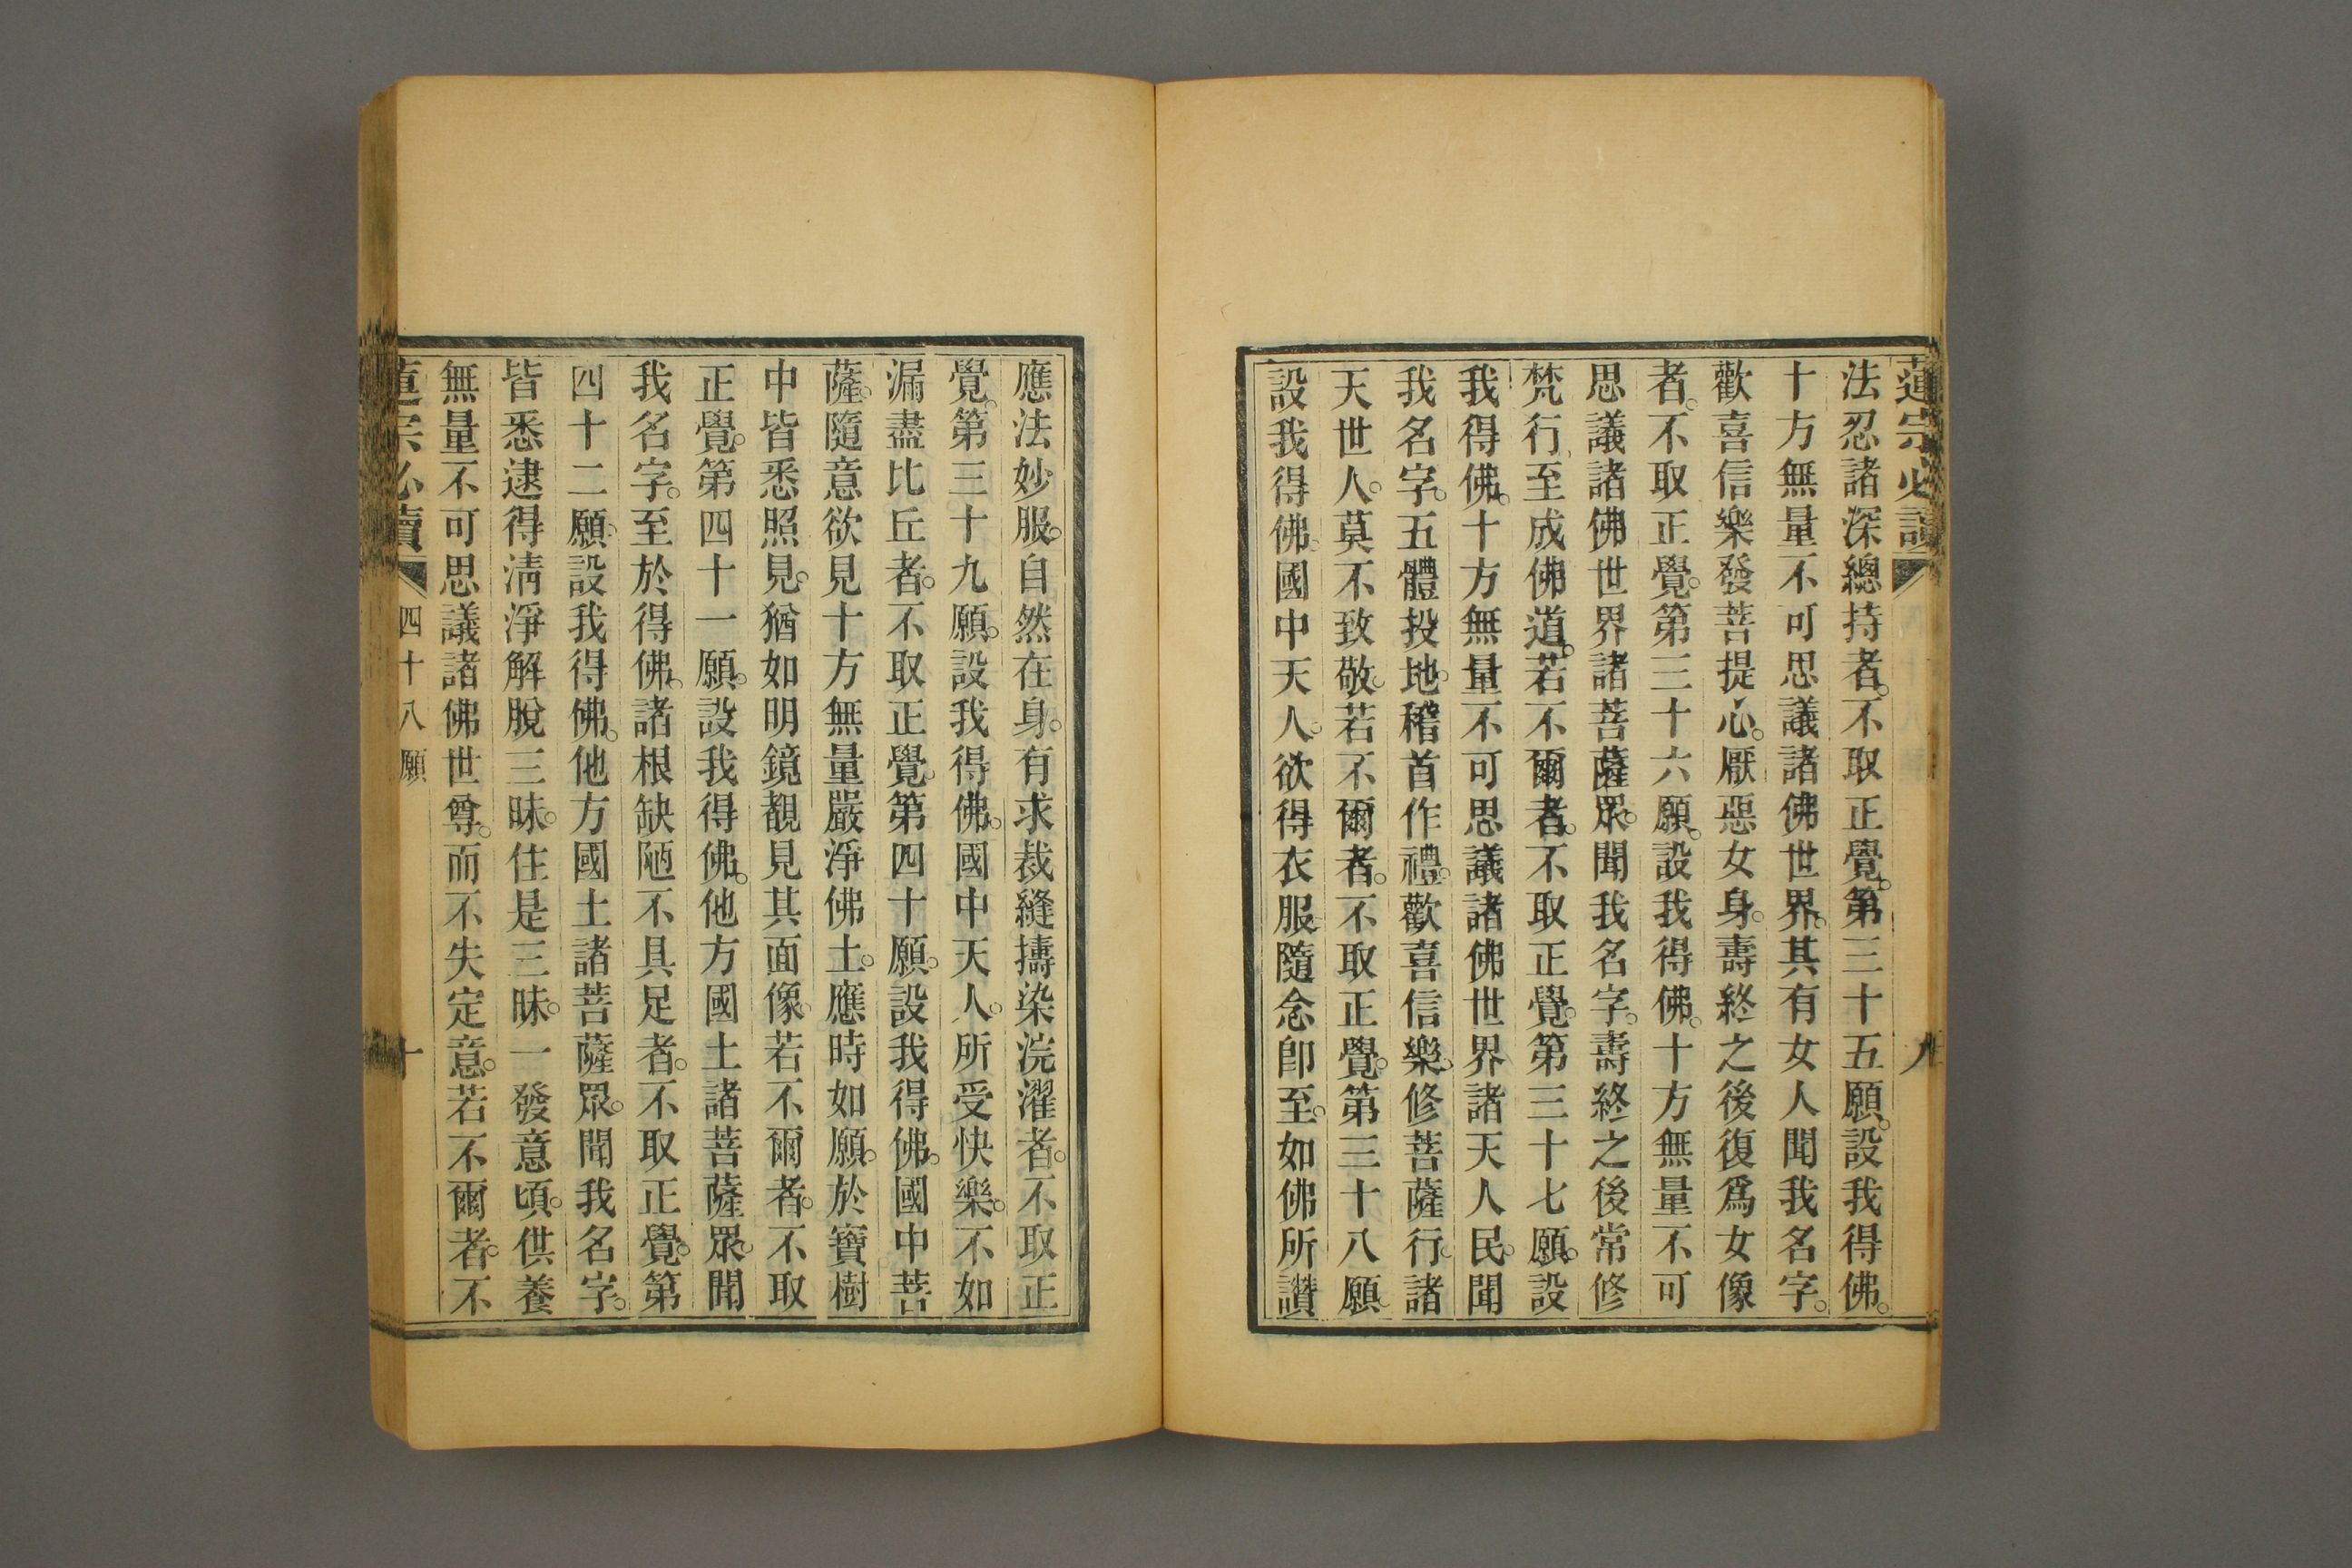 蓮宗必讀
九
法忍諸深總持者。不取正覺。第三十五願。設我得佛。
十方無量不可思議諸佛世界。其有女人聞我名字。
歡喜信樂發菩提心。厭惡女身。壽終之後復爲女像
者。不取正覺。第三十六願。設我得佛。十方無量不可
思議諸佛世界諸菩薩眾。聞我名字。壽終之後常修
梵行。至成佛道。若不爾者。不取正覺。第三十七願。設
我得佛。十方無量不可思議諸佛世界諸天人民。聞
我名字。五體投地。稽首作禮。歡喜信樂。修菩薩行。諸
天世人。莫不致敬。若不爾者。不取正覺。第三十八願。
設我得佛。國中天人。欲得衣服隨念卽至。如佛所讚
應法妙服。自然在身。有求裁縫擣染浣濯者。不取正
覺。第三十九願。設我得佛。國中天人。所受快樂。不如
漏盡比丘者。不取正覺。第四十願。設我得佛。國中菩
薩。隨意欲見十方無量嚴淨佛土。應時如願。於寶樹
中皆悉照見。猶如明鏡覩見其面像。若不爾者。不取
正覺。第四十一願。設我得佛。他方國土諸菩薩眾。聞
我名字。至於得佛。諸根缺陋不具足者。不取正覺。第
四十二願。設我得佛。他方國土諸菩薩眾。聞我名字。
皆悉逮得清淨解脫三昧。住是三昧。一發意頃。供養
無量不可思議諸佛世尊。而不失定意。若不爾者。不
蓮宗必讀
四十八願
十